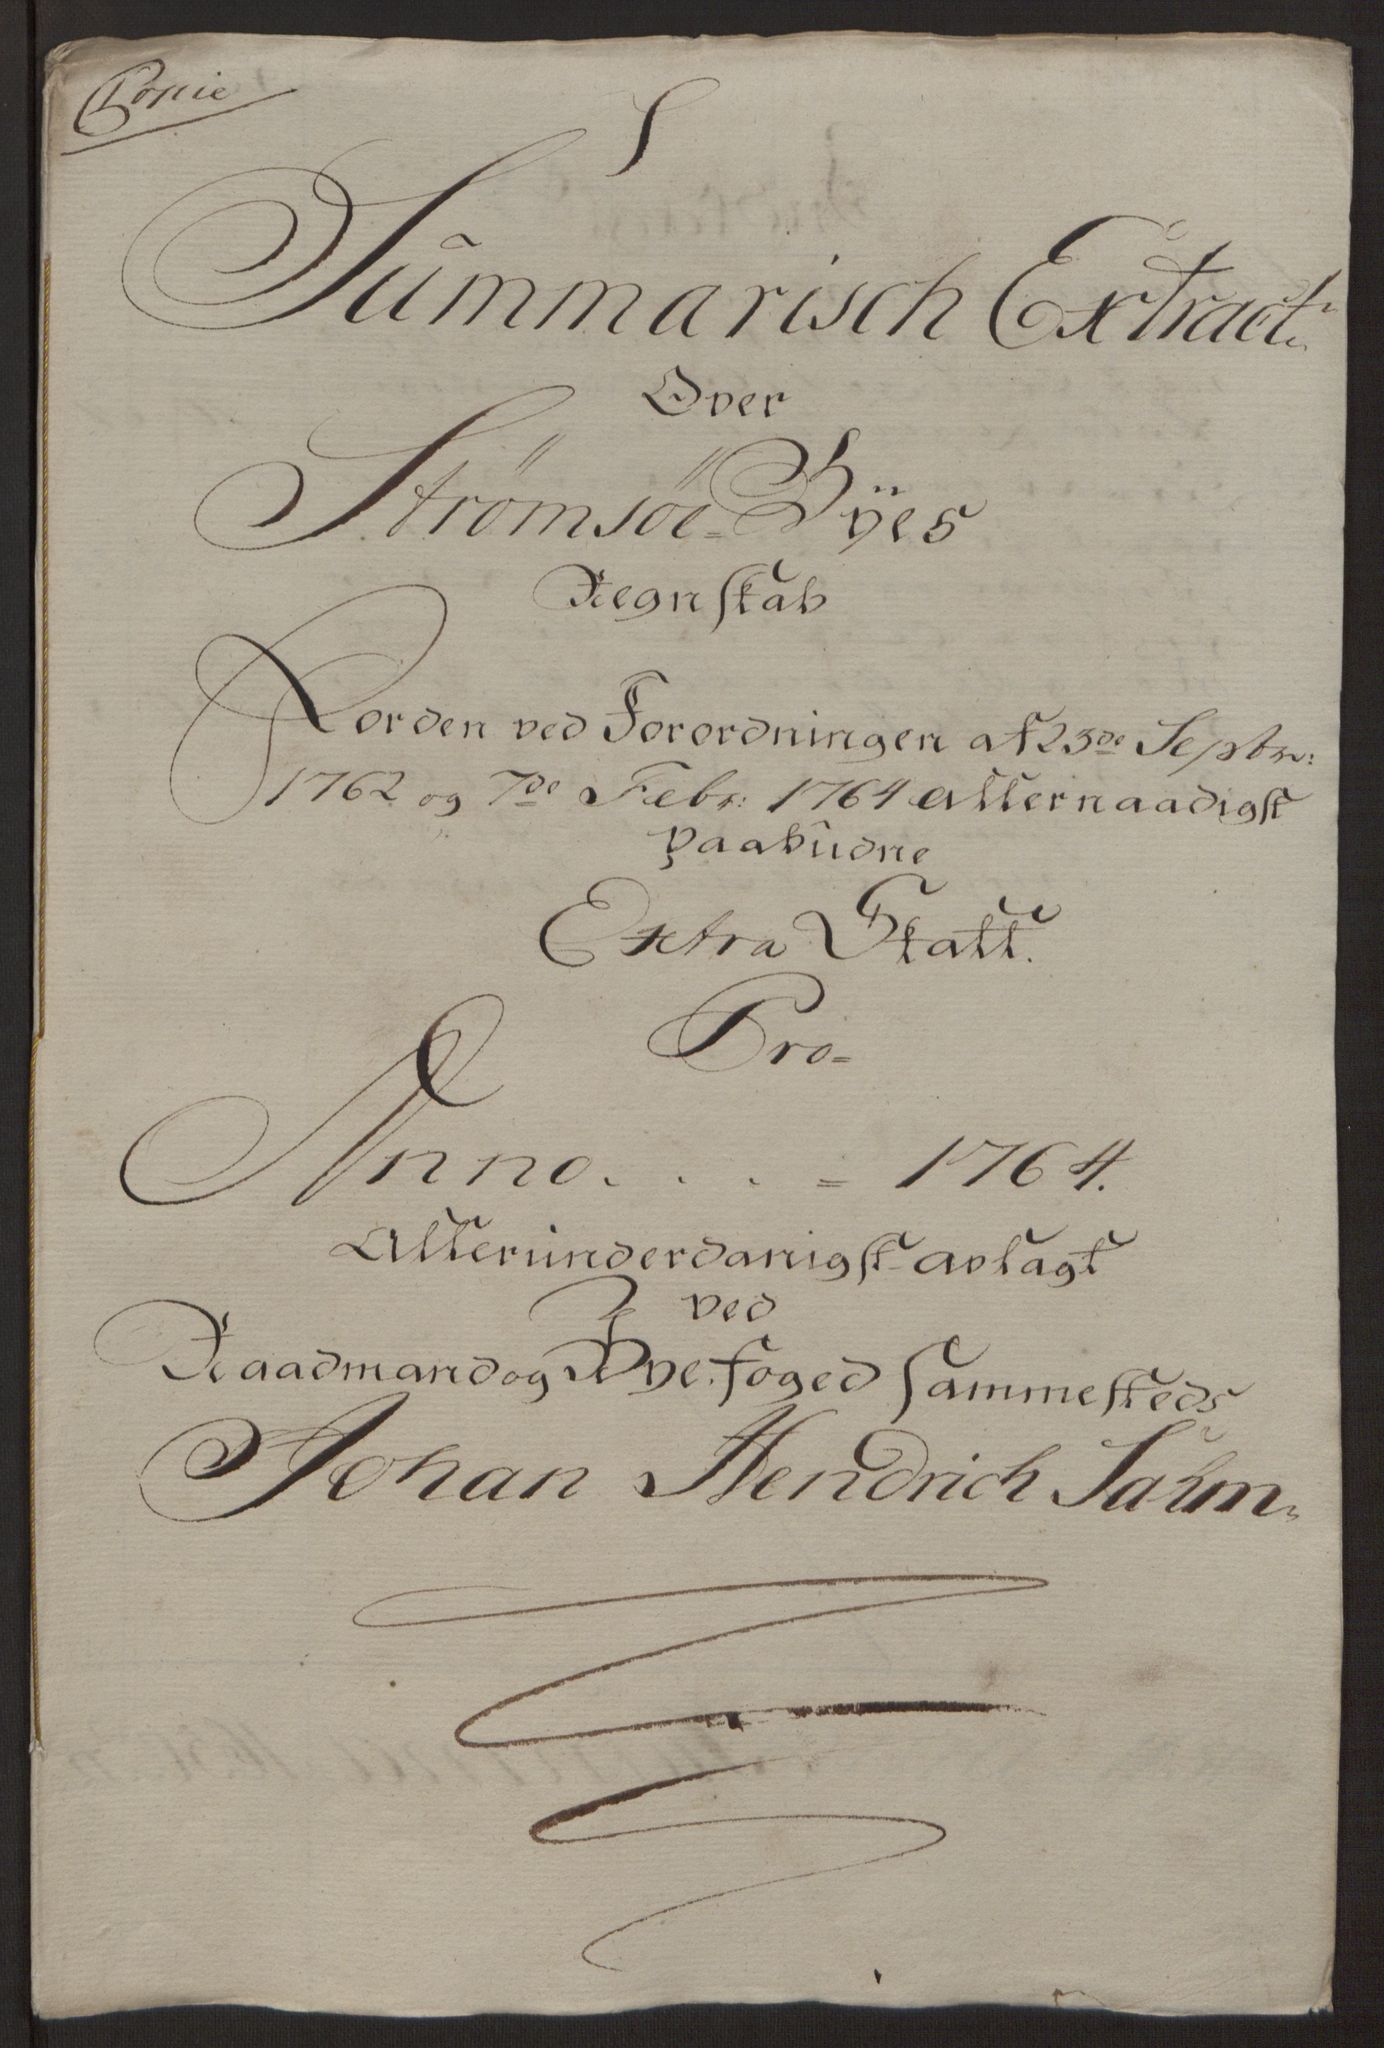 Copie
S
Summarisch Extract
Over
Strømsöe-Byes
Regnskab
for den ved Forordningen af 23de Septbr:
1762 og 7de Febr: 1764 allernaadigst
paabudne
Extra Skatt.
Pro-
Anno . . . = 1764.
Allerunderdanigst aflagt
ved
Raadmand og Bye-foged sammesteds
Johan Hendrich